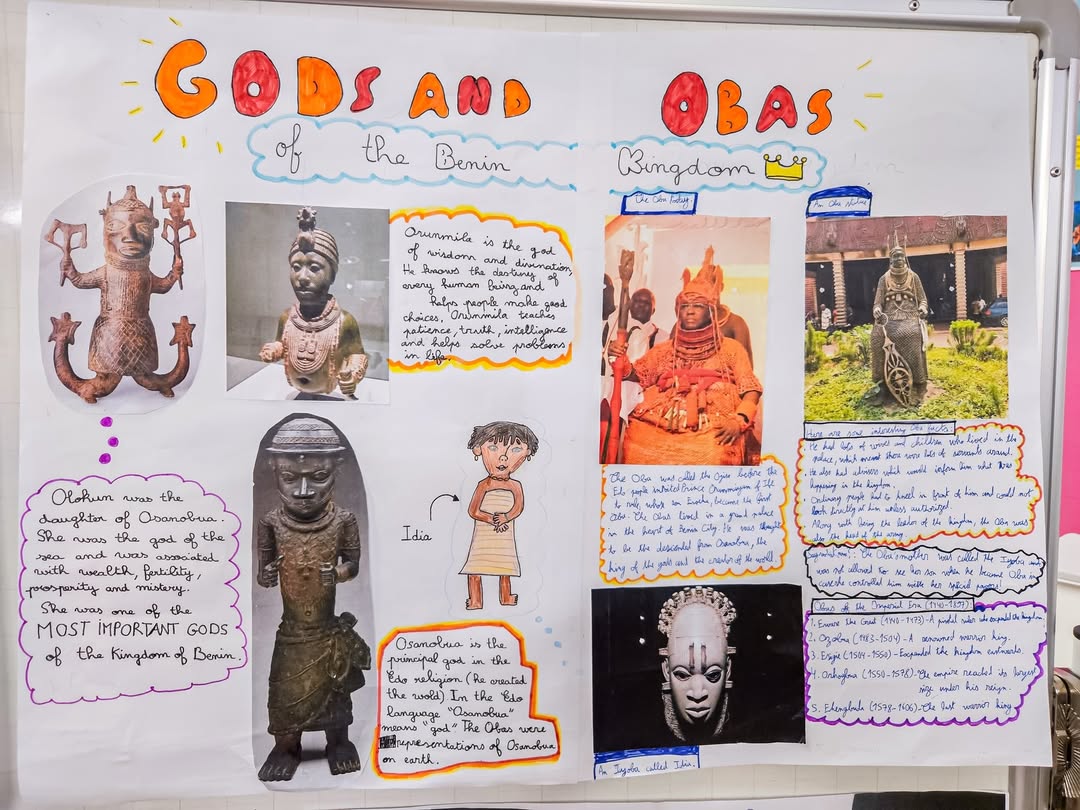 GODS AND OBAS
of the Benin Kingdom
Orunmila is the god
of wisdom and divination,
He knows the destiny of
every human being, and
helps people make good
choices, Orunmila teaches
patience, truth, intelligence
and helps solve problems
in life.
Olokun was the
daughter of Osanobua.
She was the god of the
sea and was associated
with wealth, fertility,
prosperity and mistery.
She was one of the
MOST IMPORTANT GODS
of the Kingdom of Benin.
Idia
Osanobua is the
principal god in the
Edo religion (he created
the wold). In the Edo
language "Osanobua"
means "god". The Obas were
representations of Osanobua
on earth.
The Oba
The Oba was called the Ogiso before the
Edo people invited Prince Oranmiyan of Ife
to rule, whose son Eweka, became the first
Oba. The Obas lived in a grand palace
in the heart of Benin City. He was thought
to be the descended from Osanobua, the
king of the gods and the creator of the world.
An Iyoba called Idia.
An Oba statue
Here are some interesting Oba facts:
. He had lots of wives and children who lived in the
palace, which meant there were lots of servants around.
. He also had advisors which would inform him what was
happening in the kingdom.
. Ordinary people had to kneel in front of him and could not
look directly at him unless authorized.
. Along with being the leader of the kingdom, the Oba was
also the head of the army.
The Oba's mother was called the Iyoba and
was not allowed to see her son when he became Oba in
case she controlled him with her special powers!
Obas of the Imperial Era (1440-1897):
1. Eware the Great (1440-1473)-A pivotal ruler who expanded the kingdom.
2. Ozolua (1483-1504)-A renowned warrior king.
3. Esigie (1504-1550)-Expanded the kingdom eastwards.
4. Orhogbua (1550-1578)-The empire reached its largest
size under his reign.
5. Ehengbuda (1578-1606)-The last warrior king